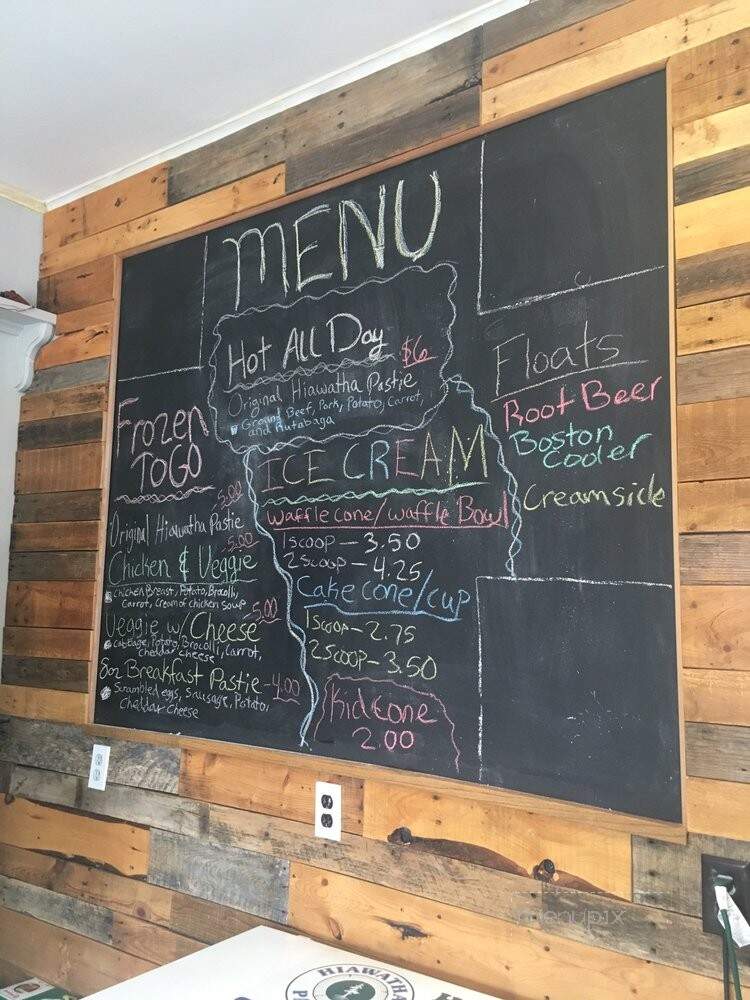 MENU
Hot All Day $6
Original Hiawatha Pastie
Ground Beef, Pork, Potato, Carrot,
and Rutabaga
Frozen
TO GO
5.00
Original Hiawatha Pastie
5.00
Chicken & Veggie
Chicken Breast, Potato, Brocolli,
Carrot, Cream of chicken soup
5.00
Veggie w/ Cheese
Cabbage, Potato, Brocolli, Carrot,
Cheddar Cheese
8oz Breakfast Pastie - 4.00
Scrambled eggs, Sausage, Potato,
Cheddar Cheese
ICE CREAM
Waffle cone/Waffle Bowl
1 scoop - 3.50
2 scoop - 4.25
Cake cone/cup
1 scoop - 2.75
2 scoop - 3.50
Kid Cone
2.00
Floats
Root Beer
Boston
Cooler
Creamsicle
menupix
HIAWATHA